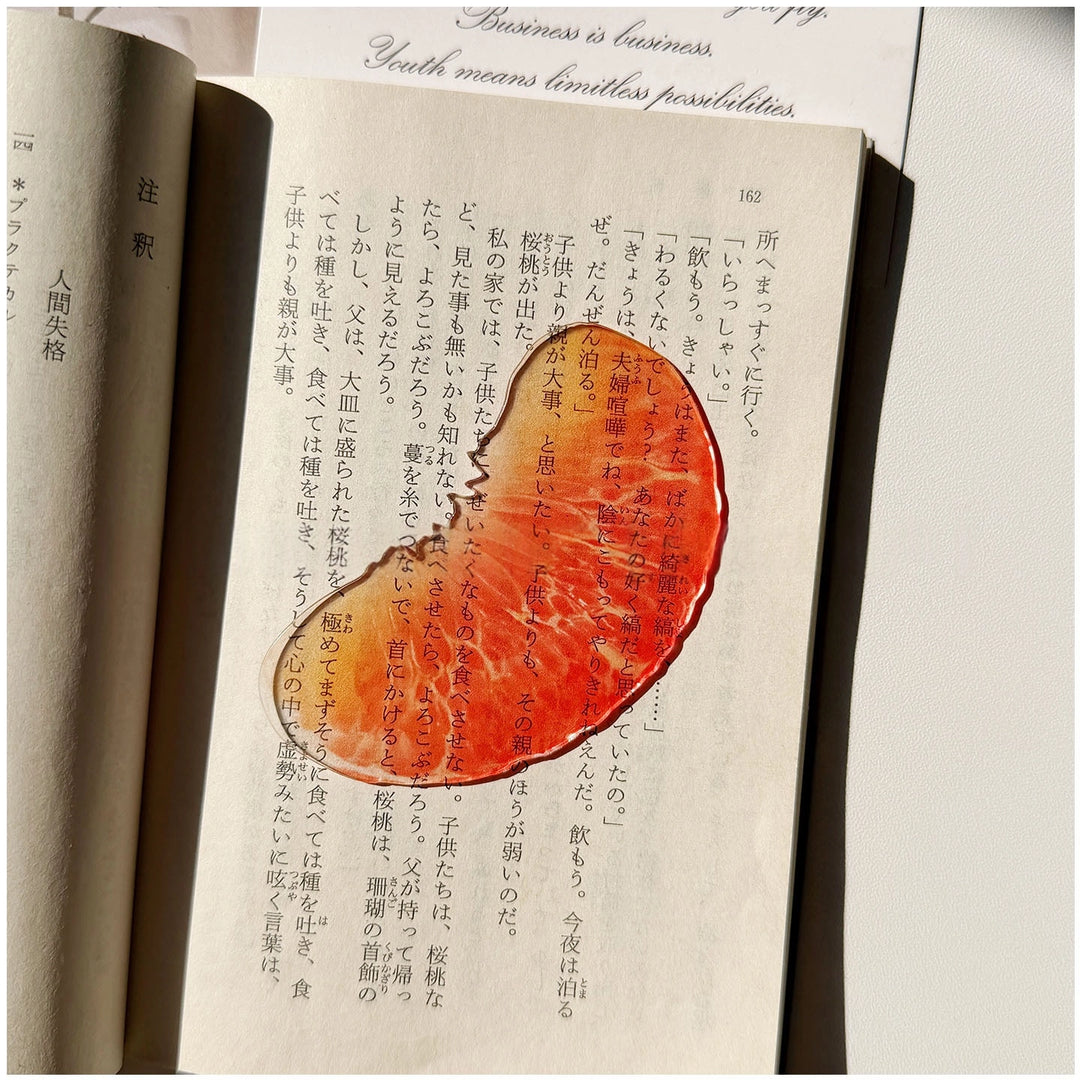 Business is business.
Youth means limitless possibilities.
162
所へまっすぐに行く。
「いらっしゃい。」
「飲もう。きょうはまた、ばかに綺麗な縞を、……」
「わるくないでしょう？　あなたの好く縞だと思っていたの。」
「きょうは、夫婦喧嘩でね、陰にこもってやりきれねえんだ。飲もう。今夜は泊る
ぜ。だんぜん泊る。」
子供より親が大事、と思いたい。子供よりも、その親のほうが弱いのだ。
桜桃が出た。
私の家では、子供たちに、ぜいたくなものを食べさせない。子供たちは、桜桃な
ど、見た事も無いかも知れない。食べさせたら、よろこぶだろう。父が持って帰っ
たら、よろこぶだろう。蔓を糸でつないで、首にかけると、桜桃は、珊瑚の首飾の
ように見えるだろう。
しかし、父は、大皿に盛られた桜桃を、極めてまずそうに食べては種を吐き、食
べては種を吐き、食べては種を吐き、そうして心の中で虚勢みたいに呟く言葉は、
子供よりも親が大事。
注釈
人間失格
一四 ＊プラクテカル